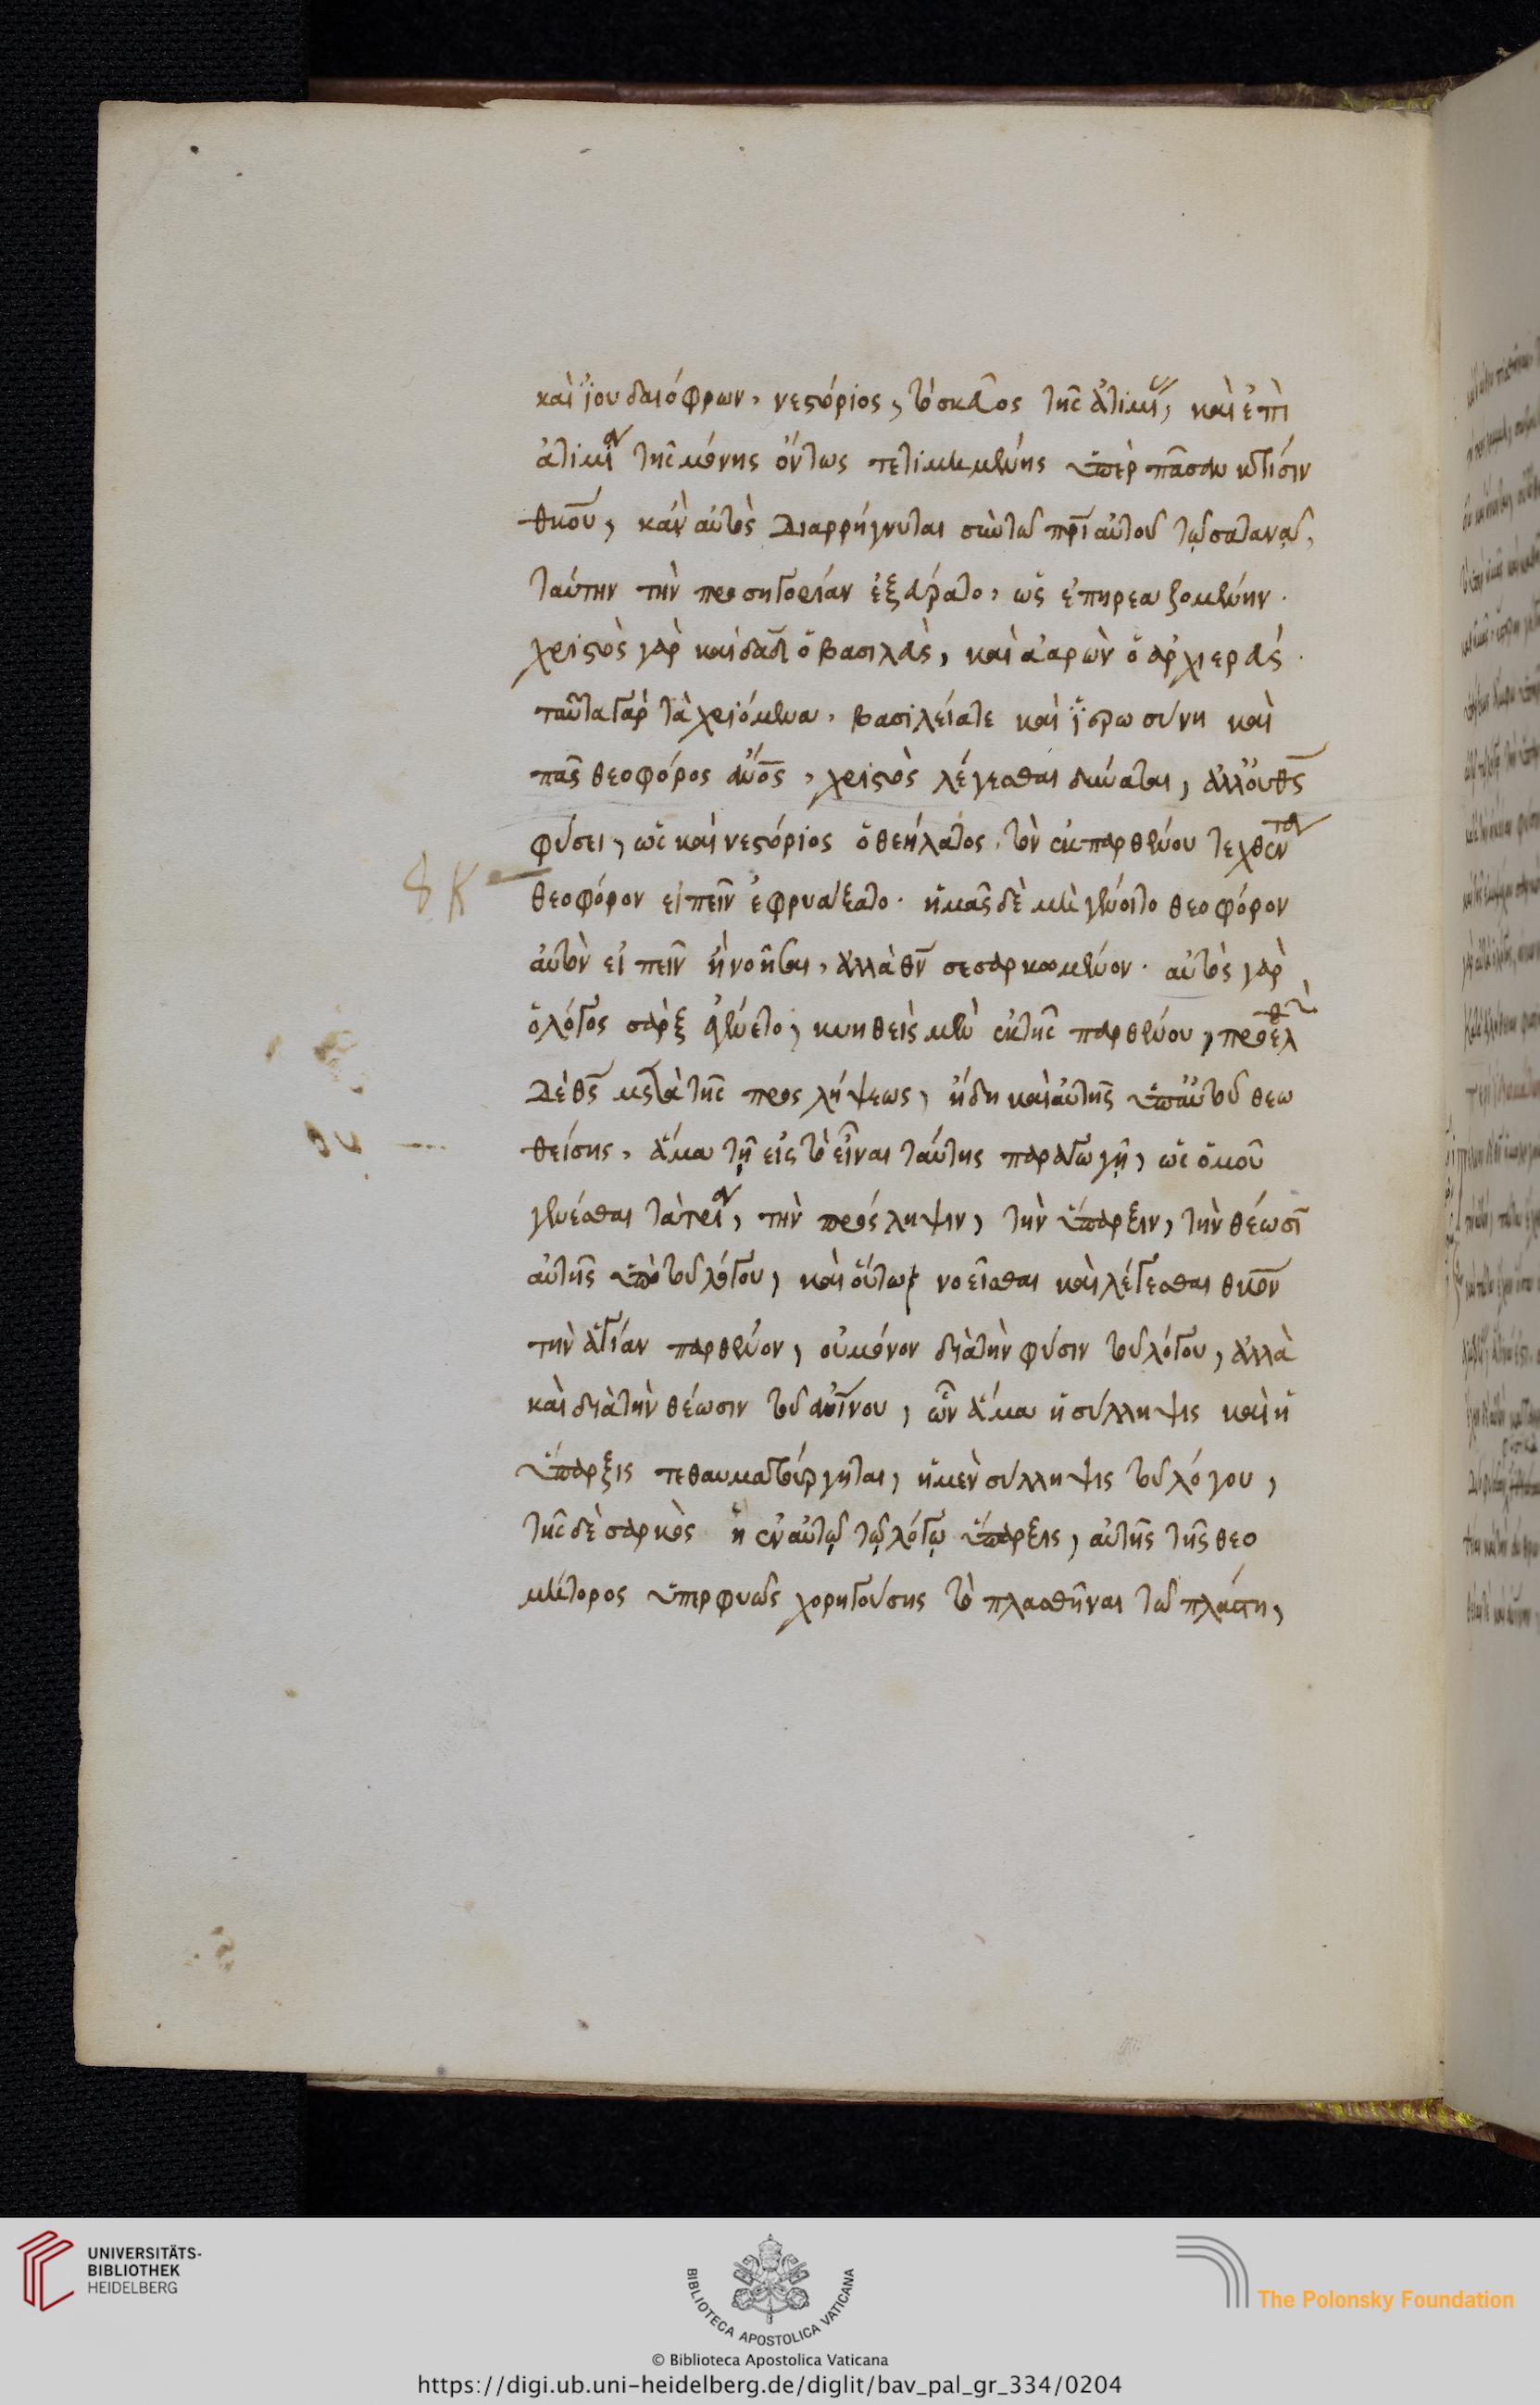 καὶ ἰουδαιόφρων, νεστόριος, τὸ σκεῦος τῆς ἀτιμίας, καὶ ἐπὶ
ἀτιμίαν τῆς μόνης ὄντως τετιμημένης ὑπὲρ πᾶσαν κτίσιν
θκου, κἂν αὐτὸς διαρρήγνυται σὺν τῶ πρι αὐτοῦ τῷ σατανᾷ,
ταύτην τὴν προσηγορίαν ἐξεύρατο, ὡς ἐπηρεαζομένην.
χριστὸς γὰρ καὶ δαδ ὁ βασιλεὺς, καὶ ἀαρὼν ὁ ἀρχιερεύς.
ταῦτα γὰρ τὰ χριόμενα, βασιλεία τε καὶ ἱερωσύνη καὶ
πᾶς θεοφόρος ανος, χριστὸς λέγεσθαι δύναται, ἀλλ' οὐ θς
φύσει, ὡς καὶ νεστόριος ὁ θεήλατος, τὸν ἐκ παρθένου τεχθέντα
θεοφόρον εἰπεῖν ἐφρυάξατο. ἡμᾶς δὲ μὴ γένοιτο θεοφόρον
αὐτὸν εἰπεῖν ἢ νοῆσαι, ἀλλὰ θν σεσαρκωμένον. αὐτὸς γὰρ
ὁ λόγος σὰρξ ἐγένετο, κυηθεὶς μὲν ἐκ τῆς παρθένου, προελθὼν
δὲ θς μετὰ τῆς προσλήψεως, ἤδη καὶ αὐτῆς ὑπ' αὐτοῦ θεω
θείσης, ἅμα τῇ εἰς τὸ εἶναι ταύτης παραγωγῇ, ὡς ὁμοῦ
γενέσθαι τὰ τρία, τὴν πρόσληψιν, τὴν ὕπαρξιν, τὴν θέωσιν
αὐτῆς ὑπὸ τοῦ λόγου, καὶ οὕτω νοεῖσθαι καὶ λέγεσθαι θκον
τὴν ἁγίαν παρθένον, οὐ μόνον διὰ τὴν φύσιν τοῦ λόγου, ἀλλὰ
καὶ διὰ τὴν θέωσιν τοῦ ανινου, ὧν ἅμα ἡ σύλληψις καὶ ἡ
ὕπαρξις τεθαυματούργηται, ἡ μὲν σύλληψις τοῦ λόγου,
τῆς δὲ σαρκὸς ἡ ἐν αὐτῷ τῷ λόγῳ ὕπαρξις, αὐτῆς τῆς θεο
μήτορος ὑπερφυῶς χορηγούσης τὸ πλασθῆναι τῶ πλάστη,
UNIVERSITÄTS-
BIBLIOTHEK
HEIDELBERG
BIBLIOTECA APOSTOLICA VATICANA
The Polonsky Foundation
© Biblioteca Apostolica Vaticana
https://digi.ub.uni-heidelberg.de/diglit/bav_pal_gr_334/0204